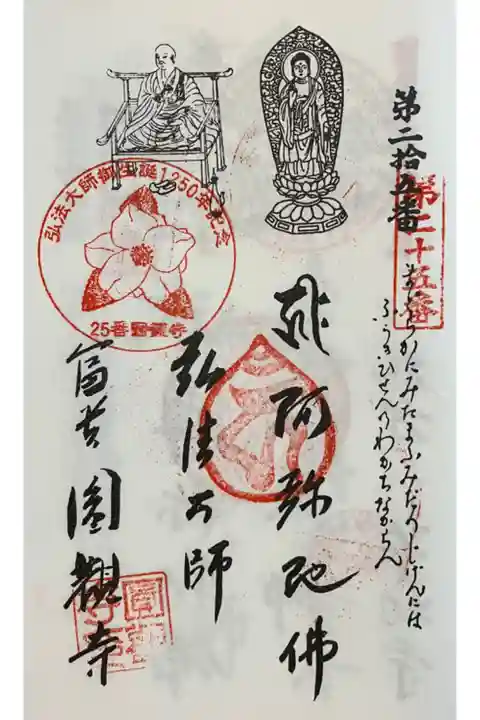 第二拾五番
第二十五番
あきらかにみたまふみだのじげんには
ふうきひせんのわかちなからん
阿弥陀佛
弘法大師
富貴 圓觀寺
弘法大師御生誕1250年記念
25番圓觀寺